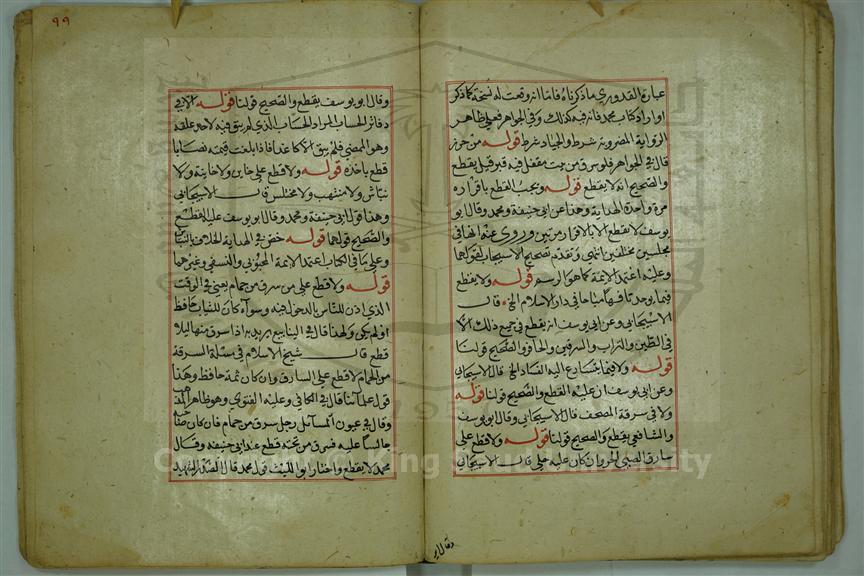 عبارة القدوري ما ذكرناه فاما انه وقعت له نسخة كما ذكر
او اراد كتاب محمد فانه فيه كذلك وفي الجواهر فعلي ظاهر
الرواية المضروبة شرط والجياد شرط قوله من حرز
قال في الجواهر فلو سرق من بيت مقفل فيه قبر قيل يقطع
والصحيح انه لا يقطع قوله ويجب القطع باقراره
مرة واحدة الهداية وهذا عن ابي حنيفة ومحمد وقال ابو
يوسف لا يقطع الا بالاقرار مرتين وروي عنه انهما في
مجلسين مختلفين انتهى وتقدم تصحيح الاسبيجابي لقولهما
وعليه اعتمد الايمة كما هو الرسم قوله ولا يقطع
فيما يوجد تافها مباحا في دار الاسلام الخ قال
الاسبيجابي وعن ابي يوسف انه يقطع في جميع ذلك الا
في الطين والتراب والسرقين والصحيح قولنا
قوله ولا فيما يتسارع اليه الفساد الخ قال الاسبيجابي
وعن ابي يوسف ان عليه القطع والصحيح قولنا قوله
ولا في سرقة المصحف قال الاسبيجابي وقال ابو يوسف
والشافعي يقطع والصحيح قولنا قوله ولا قطع علي
سارق الصبي الحر وان كان عليه حلي قال الاسبيجابي
وقال ابو
٩٩
وقال ابو يوسف يقطع والصحيح قولنا قوله الا في
دفاتر الحساب المراد الحساب الذي لم يبق فيه لاحد علقة
وهو الممضي فلم يبق الا كاغدا فاذا بلغت قيمته نصابا
قطع باخذه قوله ولا قطع علي خاين ولا خاينة ولا
نباش ولا منتهب ولا مختلس قال الاسبيجابي
وهذا قول ابي حنيفة ومحمد وقال ابو يوسف عليه القطع
والصحيح قولهما قوله خص في الهداية الخلاف بالنباش
وعلي ما في الكتاب اعتمد الايمة المحبوبي والنسفي وغيرهما
قوله ولا قطع علي من سرق من حمام يعني في الوقت
الذي اذن للناس بالدخول فيه وسواء كان للثياب حافظ
او لم يكن ولهذا قال في الينابيع يريد به اذا سرق منها ليلا
قطع قال شيخ الاسلام في مسئلة السرقة
من الحمام لا قطع علي السارق وان كان ثمة حافظ وهكذا
قول علمائنا قال في الكافي وعليه الفتوي وهو ظاهر المذهب
وقال في عيون المسائل رجل سرق من حمام فان كان صاحبه
جالسا عليه فسرق من تحته قطع عند ابي حنيفة وقال
محمد لا يقطع واختار ابو الليث قول محمد قال الصدر الشهيد